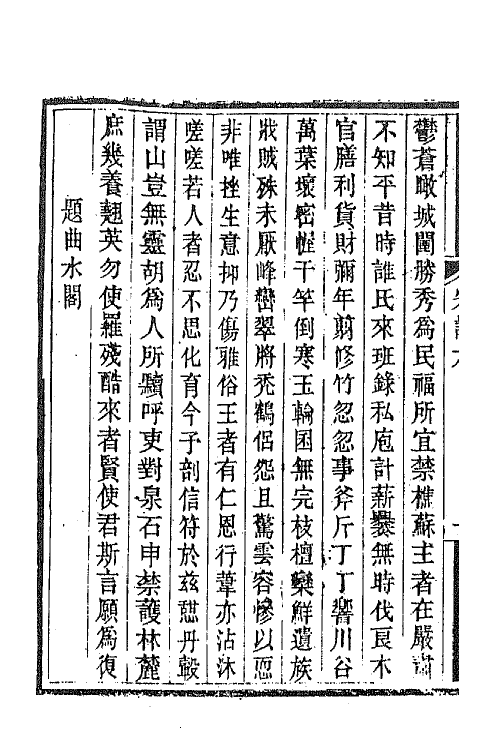 鬱蒼瞰城闉勝秀為民福所宜禁樵蘇主者在嚴肅
不知平昔時誰氏來班錄私庖計薪爨無時伐良木
官膳利貨財彌年翦修竹忽忽事斧斤丁丁響川谷
萬葉壞密幄千竿倒寒玉輪囷無完枝檀欒鮮遺族
戕賊殊未厭峰巒翠將禿鶴侶怨且驚雲容慘以恧
非唯挫生意抑乃傷雅俗王者有仁恩行葦亦沾沐
嗟嗟若人者忍不思化育今予剖信符於茲諶丹轂
謂山豈無靈胡為人所黷呼吏對泉石申禁護林麓
庶幾養翹英勿使罹殘酷來者賢使君斯言願為復
題曲水閣